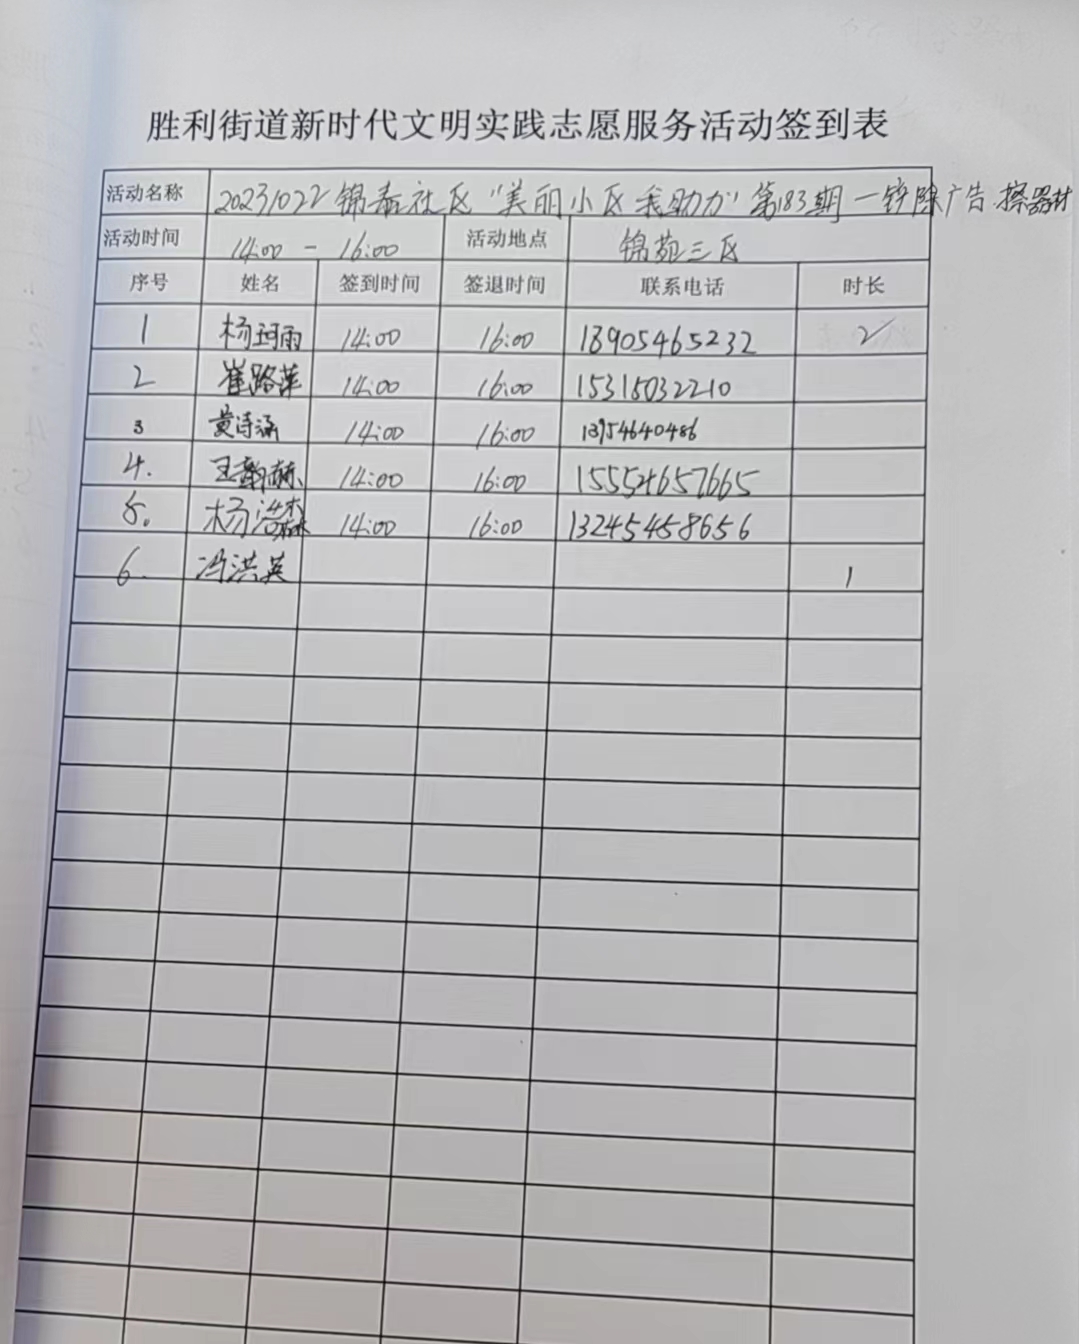 胜利街道新时代文明实践志愿服务活动签到表
活动名称 20231022锦泰社区"美丽小区我助力"第183期—铲除广告 擦器材
活动时间 14:00 - 16:00 活动地点 锦苑三区
序号 姓名 签到时间 签退时间 联系电话 时长
1 杨珂雨 14:00 16:00 18905465232 2
2 崔路萍 14:00 16:00 15315032210
3 黄诗涵 14:00 16:00 13954640486
4. 王 14:00 16:00 15554657665
5. 杨 14:00 16:00 13245458656
6. 冯洪英 1